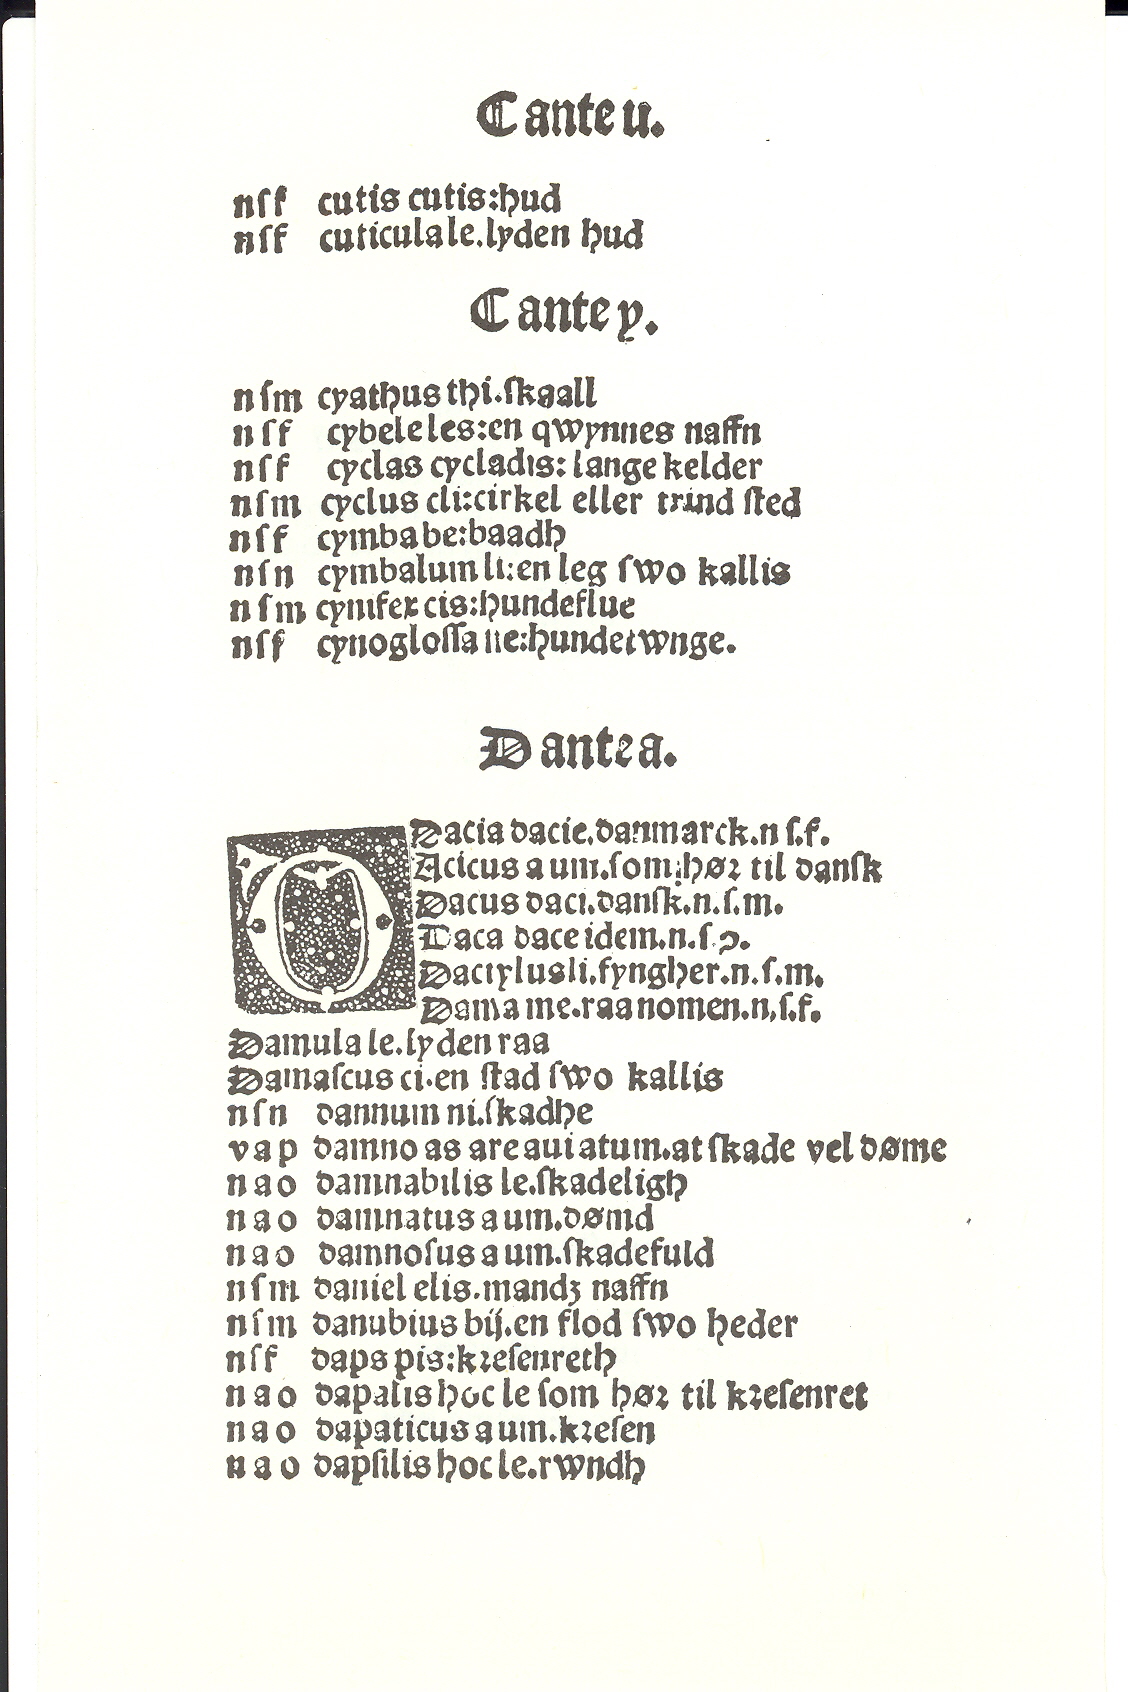 C ante u.
nſf cutis cutis:hud
nſf cuticula le.lyden hud
C ante y.
nſm cyathus thi.ſkaall
nſf cybele les:en qwynnes naffn
nſf cyclas cycladis: lange kelder
nſm cyclus cli:cirkel eller trind ſted
nſf cymba be:baadh
nſn cymbalum li:en leg ſwo kallis
nſm cymfex cis:hundeflue
nſf cynogloſſa ne:hundetwnge.
D ante a.
Dacia dacie.danmarck.n ſ.f.
Acicus a um.ſom hør til danſk
Dacus daci.danſk.n.ſ.m.
Daca dace idem.n.ſ.
Dactylus li.fyngher.n.ſ.m.
Dama me.raa nomen.n.ſ.f.
Damula le.lyden raa
Damaſcus ci.en ſtad ſwo kallis
nſn dannum ni.ſkadhe
v a p damno as are aui atum.at ſkade vel døme
n a o damnabilis le.ſkadeligh
n a o damnatus a um.dømd
n a o damnoſus a um.ſkadefuld
nſm daniel elis.mandz naffn
nſm danubius bij.en flod ſwo heder
nſf daps pis:kreſenreth
n a o dapalis hoc le ſom hør til kreſenret
n a o dapaticus a um.kreſen
n a o dapſilis hoc le.rwndh